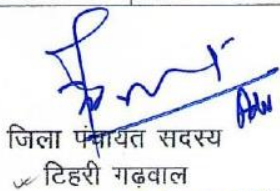 जिला पंचायत सदस्य
टिहरी गढ़वाल